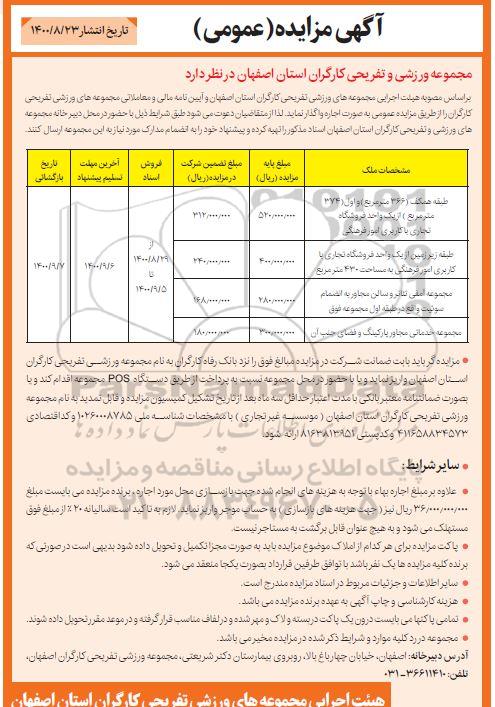 آگهی مزایده(عمومی)
تاریخ انتشار ۱۴۰۰/۸/۲۳
مجموعه ورزشی و تفریحی کارگران استان اصفهان در نظر دارد
براساس مصوبه هیئت اجرایی مجموعه های ورزشی تفریحی کارگران استان اصفهان و آیین نامه مالی و معاملاتی مجموعه های ورزشی تفریحی
کارگران را از طریق مزایده عمومی به صورت اجاره واگذار نماید. لذا از متقاضیان دعوت می شود طبق شرایط ذیل با حضور در محل دبیرخانه مجموعه
های ورزشی و تفریحی کارگران استان اصفهان اسناد مذکور را تهیه کرده و پیشنهاد خود را به انضمام مدارک مورد نیاز به این مجموعه ارسال کنند.
مشخصات ملک
مبلغ پایه مزایده (ریال)
مبلغ تضمین شرکت در مزایده(ریال)
فروش اسناد
آخرین مهلت تسلیم پیشنهاد
تاریخ بازگشائی
طبقه همکف (۳۶۶ متر مربع) و اول (۳۷۴
متر مربع) از یک واحد فروشگاه
تجاری با کاربری امور فرهنگی
۵۲۰/۰۰۰/۰۰۰
۳۱۲/۰۰۰/۰۰۰
طبقه زیر زمین از یک واحد فروشگاه تجاری با
کاربری امور فرهنگی به مساحت ۴۳۰ متر مربع
۴۰۰/۰۰۰/۰۰۰
۲۴۰/۰۰۰/۰۰۰
مجموعه آمفی تئاتر و سالن مجاور به انضمام
سوئیت واقع در طبقه اول مجموعه فوق
۲۸۰/۰۰۰/۰۰۰
۱۶۸/۰۰۰/۰۰۰
مجموعه خدماتی مجاور پارکینگ و فضای جنب آن
۳۰۰/۰۰۰/۰۰۰
۱۸۰/۰۰۰/۰۰۰
از
۱۴۰۰/۸/۲۹
تا
۱۴۰۰/۹/۵
۱۴۰۰/۹/۶
۱۴۰۰/۹/۷
• مزایده گر باید بابت ضمانت شرکت در مزایده مبالغ فوق را نزد بانک رفاه کارگران به نام مجموعه ورزشی تفریحی کارگران
استان اصفهان واریز نماید و یا با حضور در محل مجموعه نسبت به پرداخت از طریق دستگاه POS مجموعه اقدام کند و یا
بصورت ضمانتنامه معتبر بانکی با مدت اعتبار حداقل سه ماه بعد از تاریخ تشکیل کمیسیون مزایده و قابل تمدید به نام مجموعه
ورزشی تفریحی کارگران استان اصفهان ( موسسه غیر تجاری ) با مشخصات شناسه ملی ۱۰۲۶۰۰۰۸۷۸۵ و کد اقتصادی
۴۱۱۶۵۸۸۳۴۵۷۳ و کد پستی ۸۱۶۳۸۱۳۹۵۱ ارائه شود.
• سایر شرایط:
• علاوه بر مبلغ اجاره بهاء با توجه به هزینه های انجام شده جهت بازسازی محل مورد اجاره، برنده مزایده می بایست مبلغ
۳۶/۰۰۰/۰۰۰/۰۰۰ ریال نیز (جهت هزینه های بازسازی) به حساب موجر واریز نماید. لازم به تاکید است سالیانه ۲۰٪ از مبلغ فوق
مستهلک می شود و به هیچ عنوان قابل برگشت به مستاجر نیست.
• پاکت مزایده برای هر کدام از املاک موضوع مزایده باید به صورت مجزا تکمیل و تحویل داده شود بدیهی است در صورتی که
برنده کلیه مزایده ها یک نفر باشد با توافق طرفین قرارداد بصورت یکجا منعقد می شود.
• سایر اطلاعات و جزئیات مربوط در اسناد مزایده مندرج است.
• هزینه کارشناسی و چاپ آگهی به عهده برنده مزایده می باشد.
• تمامی پاکتها می بایست درون یک پاکت در بسته و لاک و مهر شده و در لفاف مناسب قرار گرفته و در موعد مقرر تحویل داده شوند.
• مجموعه در رد کلیه موارد و شرایط ذکر شده در مزایده مخیر می باشد.
آدرس دبیرخانه: اصفهان، خیابان چهارباغ بالا، روبروی بیمارستان دکتر شریعتی، مجموعه ورزشی تفریحی کارگران اصفهان،
تلفن: ۳۶۶۱۱۴۱۰-۰۳۱
هیئت اجرایی مجموعه های ورزشی تفریحی کارگران استان اصفهان
پایگاه اطلاع رسانی مناقصه و مزایده